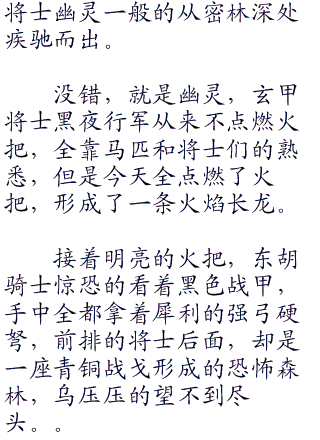 将士幽灵一般的从密林深处
疾驰而出。
没错，就是幽灵，玄甲
将士黑夜行军从来不点燃火
把，全靠马匹和将士们的熟
悉，但是今天全点燃了火
把，形成了一条火焰长龙。
接着明亮的火把，东胡
骑士惊恐的看着黑色战甲，
手中全都拿着犀利的强弓硬
弩，前排的将士后面，却是
一座青铜战戈形成的恐怖森
林，乌压压的望不到尽
头。。